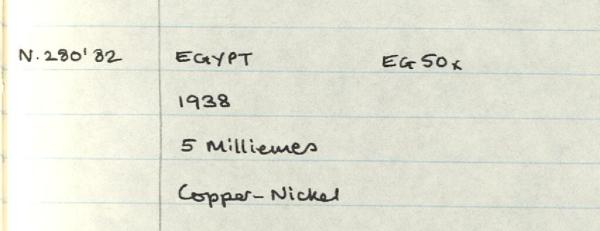 N.280'82 EGYPT EG50x
1938
5 Milliemes
Copper-Nickel